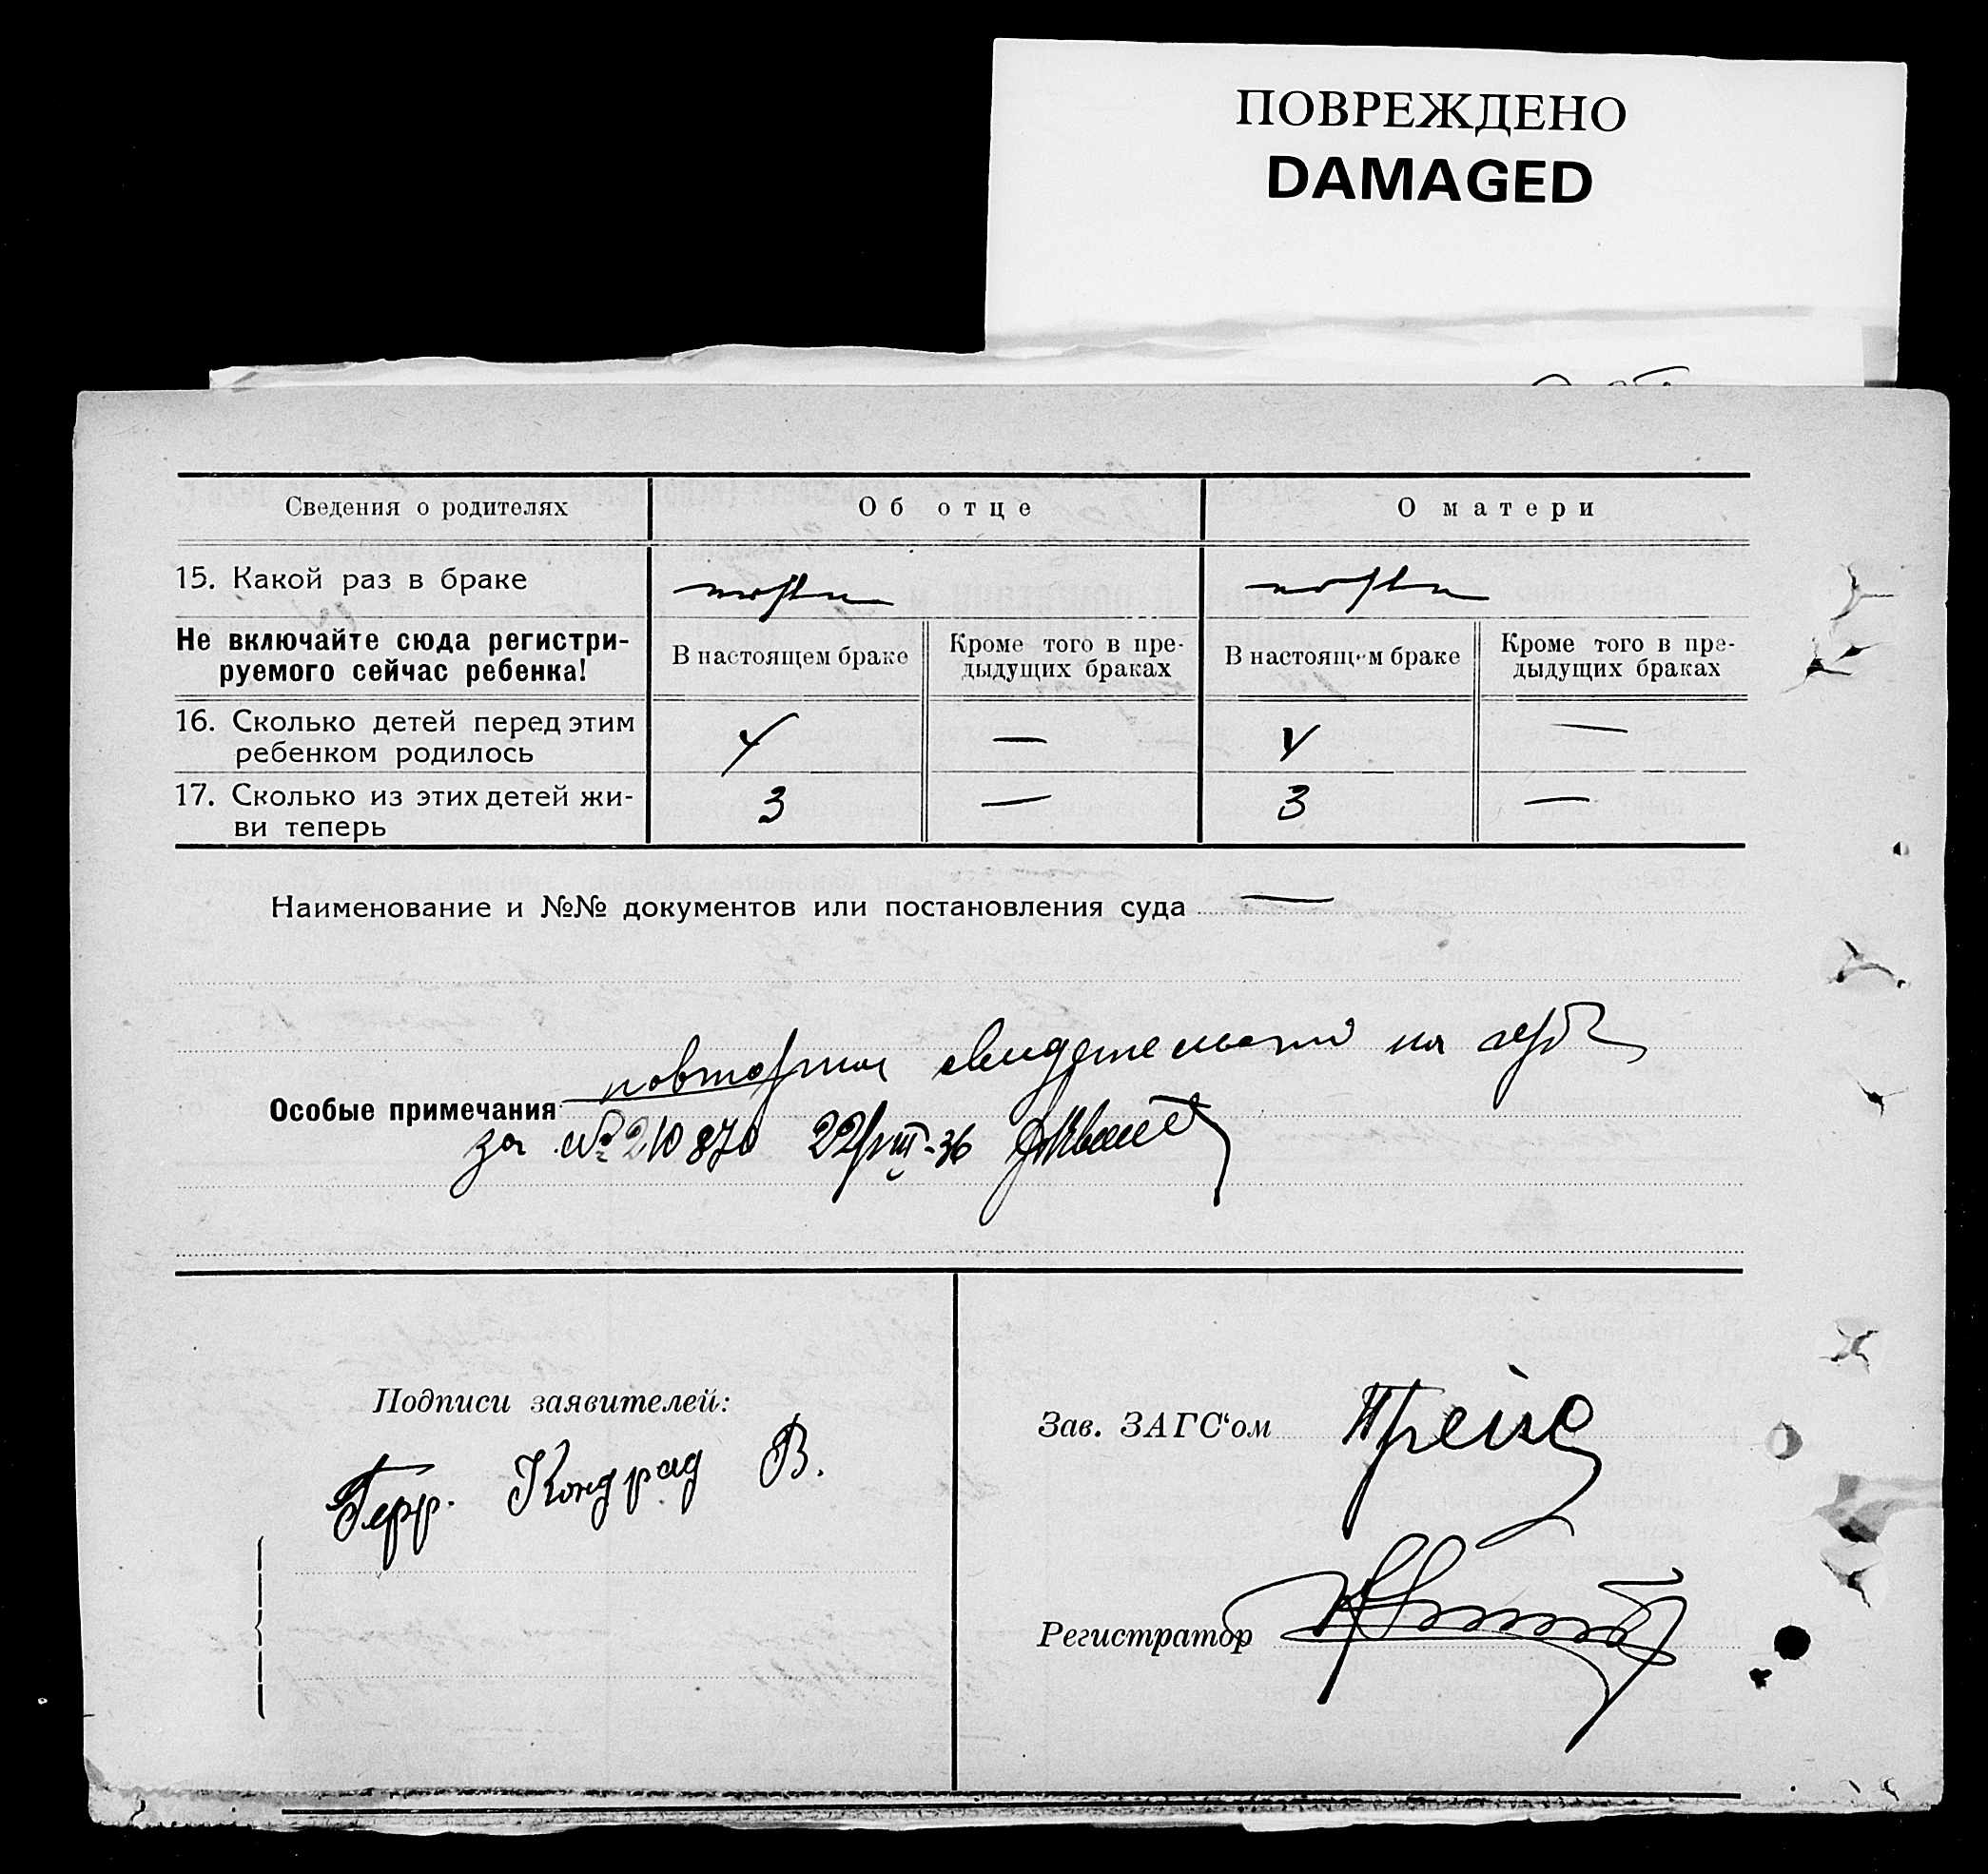 ПОВРЕЖДЕНО
DAMAGED
Сведения о родителях
Об отце
О матери
15. Какой раз в браке
Не включайте сюда регистри-
руемого сейчас ребенка!
В настоящем браке
Кроме того в пре-
дыдущих браках
В настоящем браке
Кроме того в пре-
дыдущих браках
16. Сколько детей перед этим
ребенком родилось
4 — 4 —
17. Сколько из этих детей жи-
ви теперь
3 — 3 —
Наименование и №№ документов или постановления суда —
свидетельство на
Особые примечания
за № 210870 22/VIII-36
Подписи заявителей:
Герр. Кондрад В.
Зав. ЗАГС‘ом
Регистратор